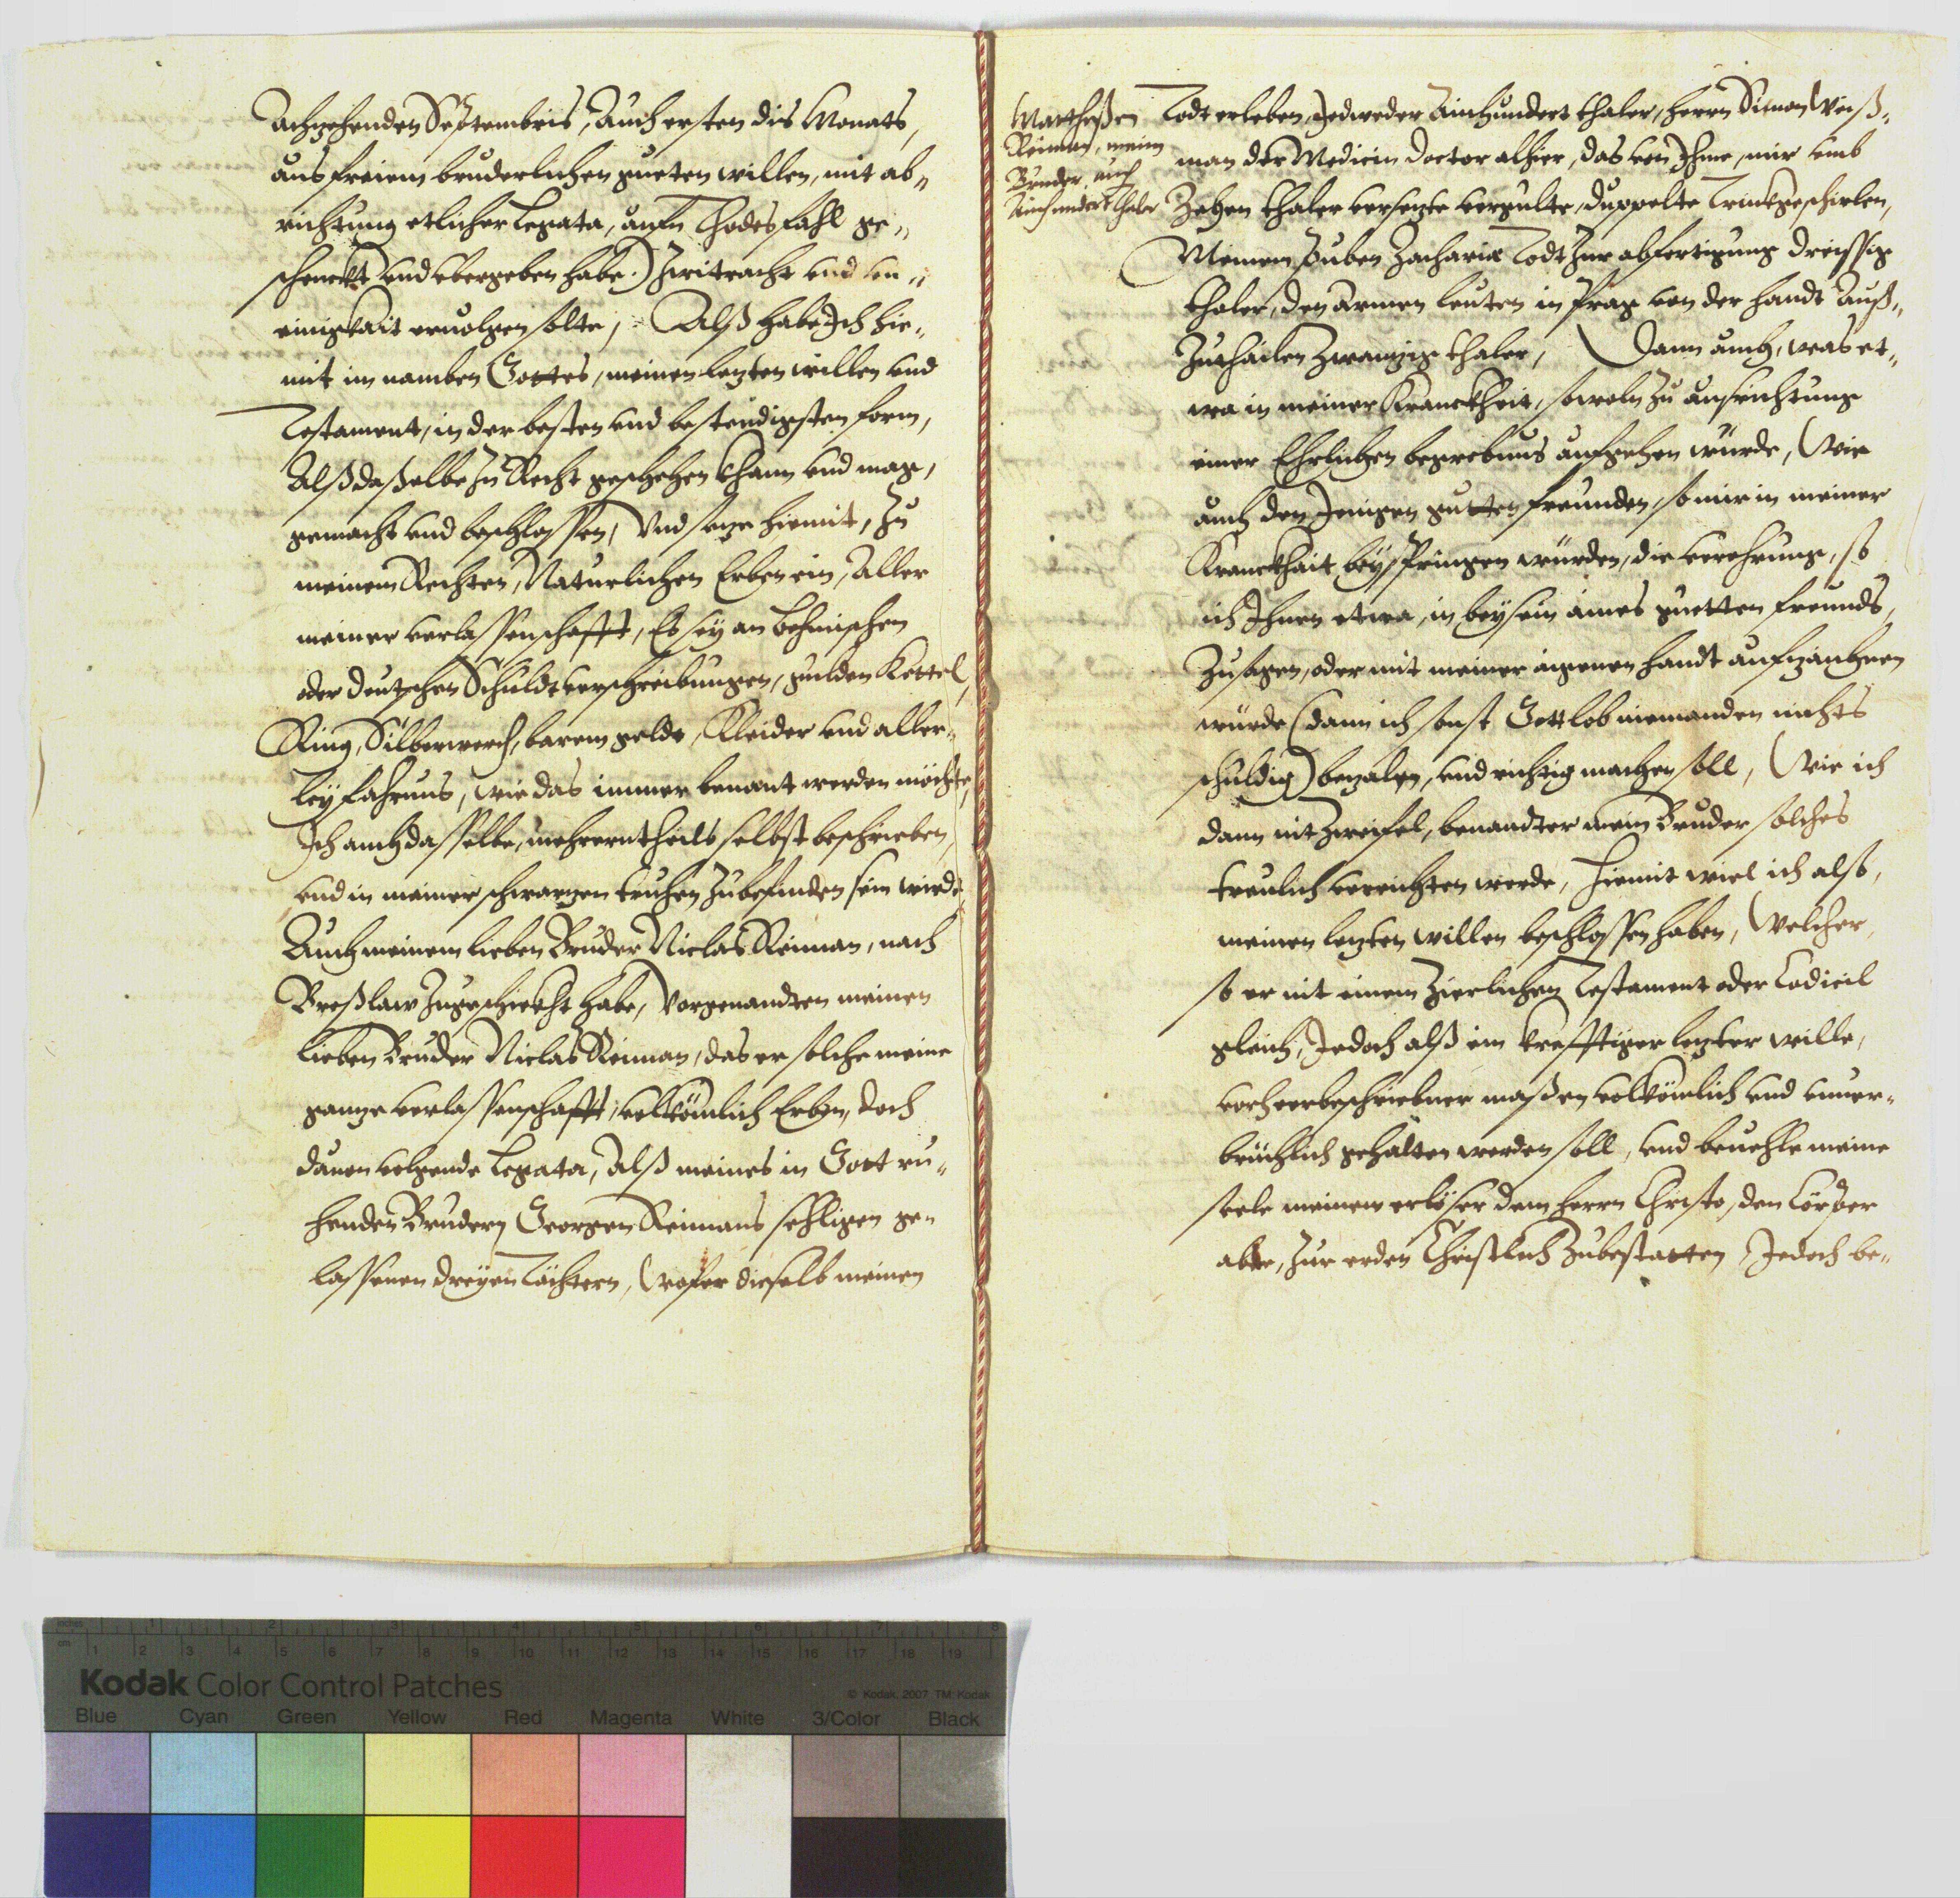 Achzehenden Septembris, Auch ersten dis Monats,
aus freiem bruderlichen gueten willen, mit ab„
richtung etlicher Legata, aufn Thodesfahl ge„
schenckt vnd vbergeben habe.) Zwitracht vnd vn„
einigkait eruolgen solte, Alß habe Ich hie„
mit im namben Gottes, meinen lezten willen vnd
Testament, in der besten vnd bestendigsten form,
Alß daßelbe zu Recht geschehen khann vnd mag,
gemacht vnd beschlossen, Vnd seze hiemit, Zu
meinem Rechten, Naturlichen Erben ein, Aller
meiner verlassenschafft, Es sey an Behmischen
oder deutschen Schuldtverschreibungen, gulden Kettel,
Ring, Silberwerch, barem gelde, Kleider vnd aller„
ley fahrnus, wie das immer benant werden möchte,
Ich auch dasselbe, mehrerntheils selbst beschrieben,
vnd in meiner schwarzen truhen zubefinden sein wirde
Auch meinem lieben Bruder Niclas Reiman, nach
Breßlaw zugeschickht habe, Vorgenandten meinen
lieben Bruder Niclas Reiman, das er solche meine
ganze verlassenschafft, volkömlich Erben, doch
dauon volgende Legata, Alß meines in Gott ru„
henden Brudern Georgen Reimans sehligen ge„
lassenen dreyen Töchtern, Wofer dieselb meinen
Matthesen
Reiman, meim
Bruder, auch
Ainhundert thaler
Todt erleben, Jedweder Ainhundert thaler, Herrn Simon Weiß„
man der Medicin Doctor alhier, das von Ihme, mir vmb
Zehen thaler versezte vergulte, duppelte Trinkgeschirlen,
Meinem Buben Zachariæ Todt Zur abfertigung dreissig
thaler, den armen leuten in Prag von der handt Auß„
Zuthailen Zwanzig thaler, Dann auch, was et„
wa in meiner Kranckheit, sowoln zu ausrichtung
einer Ehrlichen begrebnus aufgehen würde, Wie
auch den Jenigen gutten freunden, so mir in meiner
Kranckhait beyspringen würden, die verehrung, so
ich Ihnen etwa, in beysein aines guetten freunds,
Zusagen, oder mit meiner aigenen handt aufzaichnen
würde (dann ich sonst Gott lob niemanden nichts
schuldig) bezalen, vnd richtig machen soll, Wie ich
dann nit Zweifel, benandter mein Bruder solches
treulich verrichten werde, Hiemit wiel ich also,
meinen lezten willen beschlossen haben, Welcher,
so er nit einem Zierlichen Testament oder Codicil
gleich, Jedoch alß ein krefftiger lezter wille,
vorhero beschriebner maßen volkömlich vnd vnuer„
brüchlich gehalten werden soll, vnd beuehle meine
seele meinem erlöser dem herrn Christo, den Cörper
aber, zur erden Christlich zubestatten Jedoch be„
inches 1 2 3 4 5 6 7 8
cm 1 2 3 4 5 6 7 8 9 10 11 12 13 14 15 16 17 18 19
Kodak Color Control Patches
© Kodak, 2007 TM: Kodak
Blue Cyan Green Yellow Red Magenta White 3/Color Black